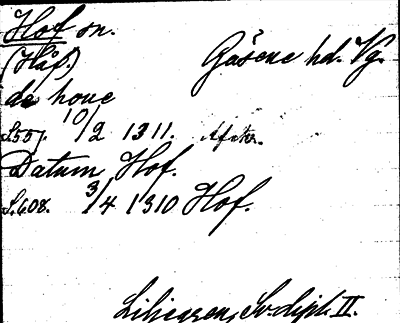 Hof sn.
(Håf.) Gåsene hd. Vg.
de houe
S.507. 10/2 1311. Afskr.
Datum Hof.
S.608. 3/4 1310 Hof.
Liliegren, Sv. dipl. II.